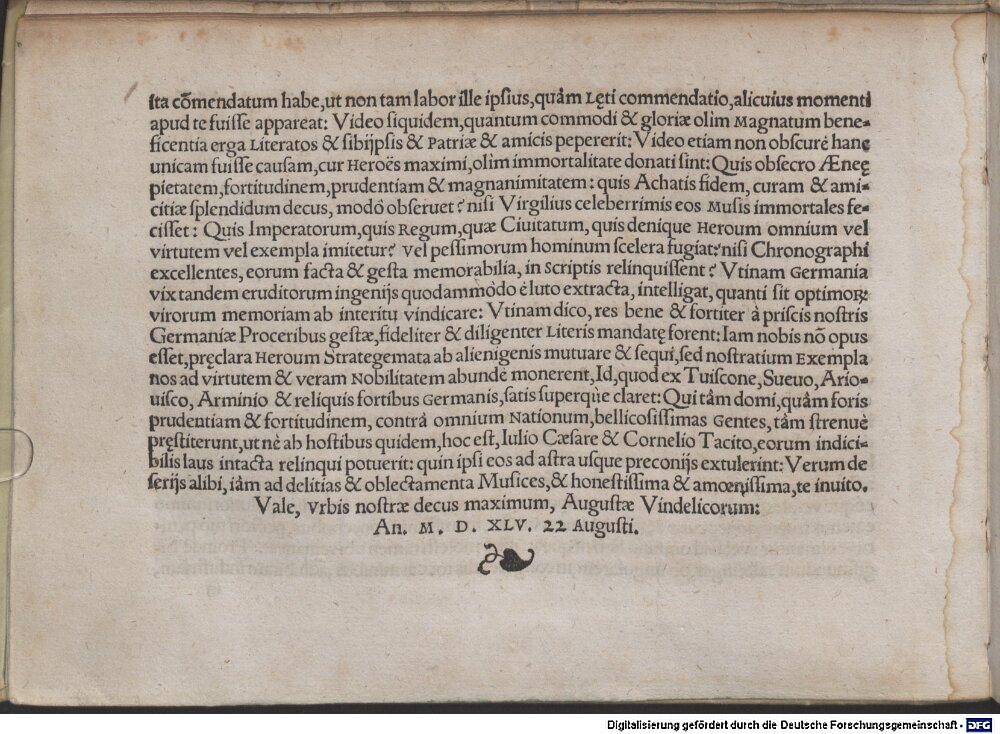 ſta cōmendatum habe, ut non tam labor ille ipſius, quàm Lęti commendatio, alicuius momenti
apud te fuiſſe appareat: Video ſiquidem, quantum commodi & gloriæ olim Magnatum bene-
ficentia erga Literatos & ſibijpſis & Patriæ & amicis pepererit: Video etiam non obſcurè hanc
unicam fuiſſe cauſam, cur Heroës maximi, olim immortalitate donati ſint: Quis obſecro Æneę
pietatem, fortitudinem, prudentiam & magnanimitatem: quis Achatis fidem, curam & ami-
citiæ ſplendidum decus, modò obſeruet? niſi Virgilius celeberrimis eos Muſis immortales fe-
ciſſet: Quis Imperatorum, quis Regum, quæ Ciuitatum, quis denique Heroum omnium vel
virtutem vel exempla imitetur? vel peſſimorum hominum ſcelera fugiat? niſi Chronographi
excellentes, eorum facta & geſta memorabilia, in Scriptis relinquiſſent? Vtinam Germania
vix tandem eruditorum ingenijs quodammòdo è luto extracta, intelligat, quanti ſit optimoꝝ
virorum memoriam ab interitu vindicare: Vtinam dico, res bene & fortiter à priſcis noſtris
Germaniæ Proceribus geſtæ, fideliter & diligenter Literis mandatę forent: Iam nobis nō opus
eſſet, pręclara Heroum Strategemata ab alienigenis mutuare & ſequi, ſed noſtratium Exempla
nos ad virtutem & veram Nobilitatem abundè monerent, Id, quod ex Tuiſcone, Sueuo, Ario-
uiſco, Arminio & reliquis fortibus Germanis, ſatis ſuperque claret: Qui tàm domi, quàm foris
prudentiam & fortitudinem, contrà omnium Nationum, bellicoſiſſimas Gentes, tàm ſtrenuè
pręſtiterunt, ut nè ab hoſtibus quidem, hoc eſt, Iulio Cæſare & Cornelio Tacito, eorum indici-
bilis laus intacta relinqui potuerit: quin ipſi eos ad aſtra uſque preconijs extulerint: Verum de
ſerijs alibi, iàm ad delitias & oblectamenta Muſices, & honeſtiſſima & amœniſſima, te inuito.
Vale, vrbis noſtræ decus maximum, Auguſtæ Vindelicorum:
An. M. D. XLV. 22 Auguſti.
Digitalisierung gefördert durch die Deutsche Forschungsgemeinschaft - DFG